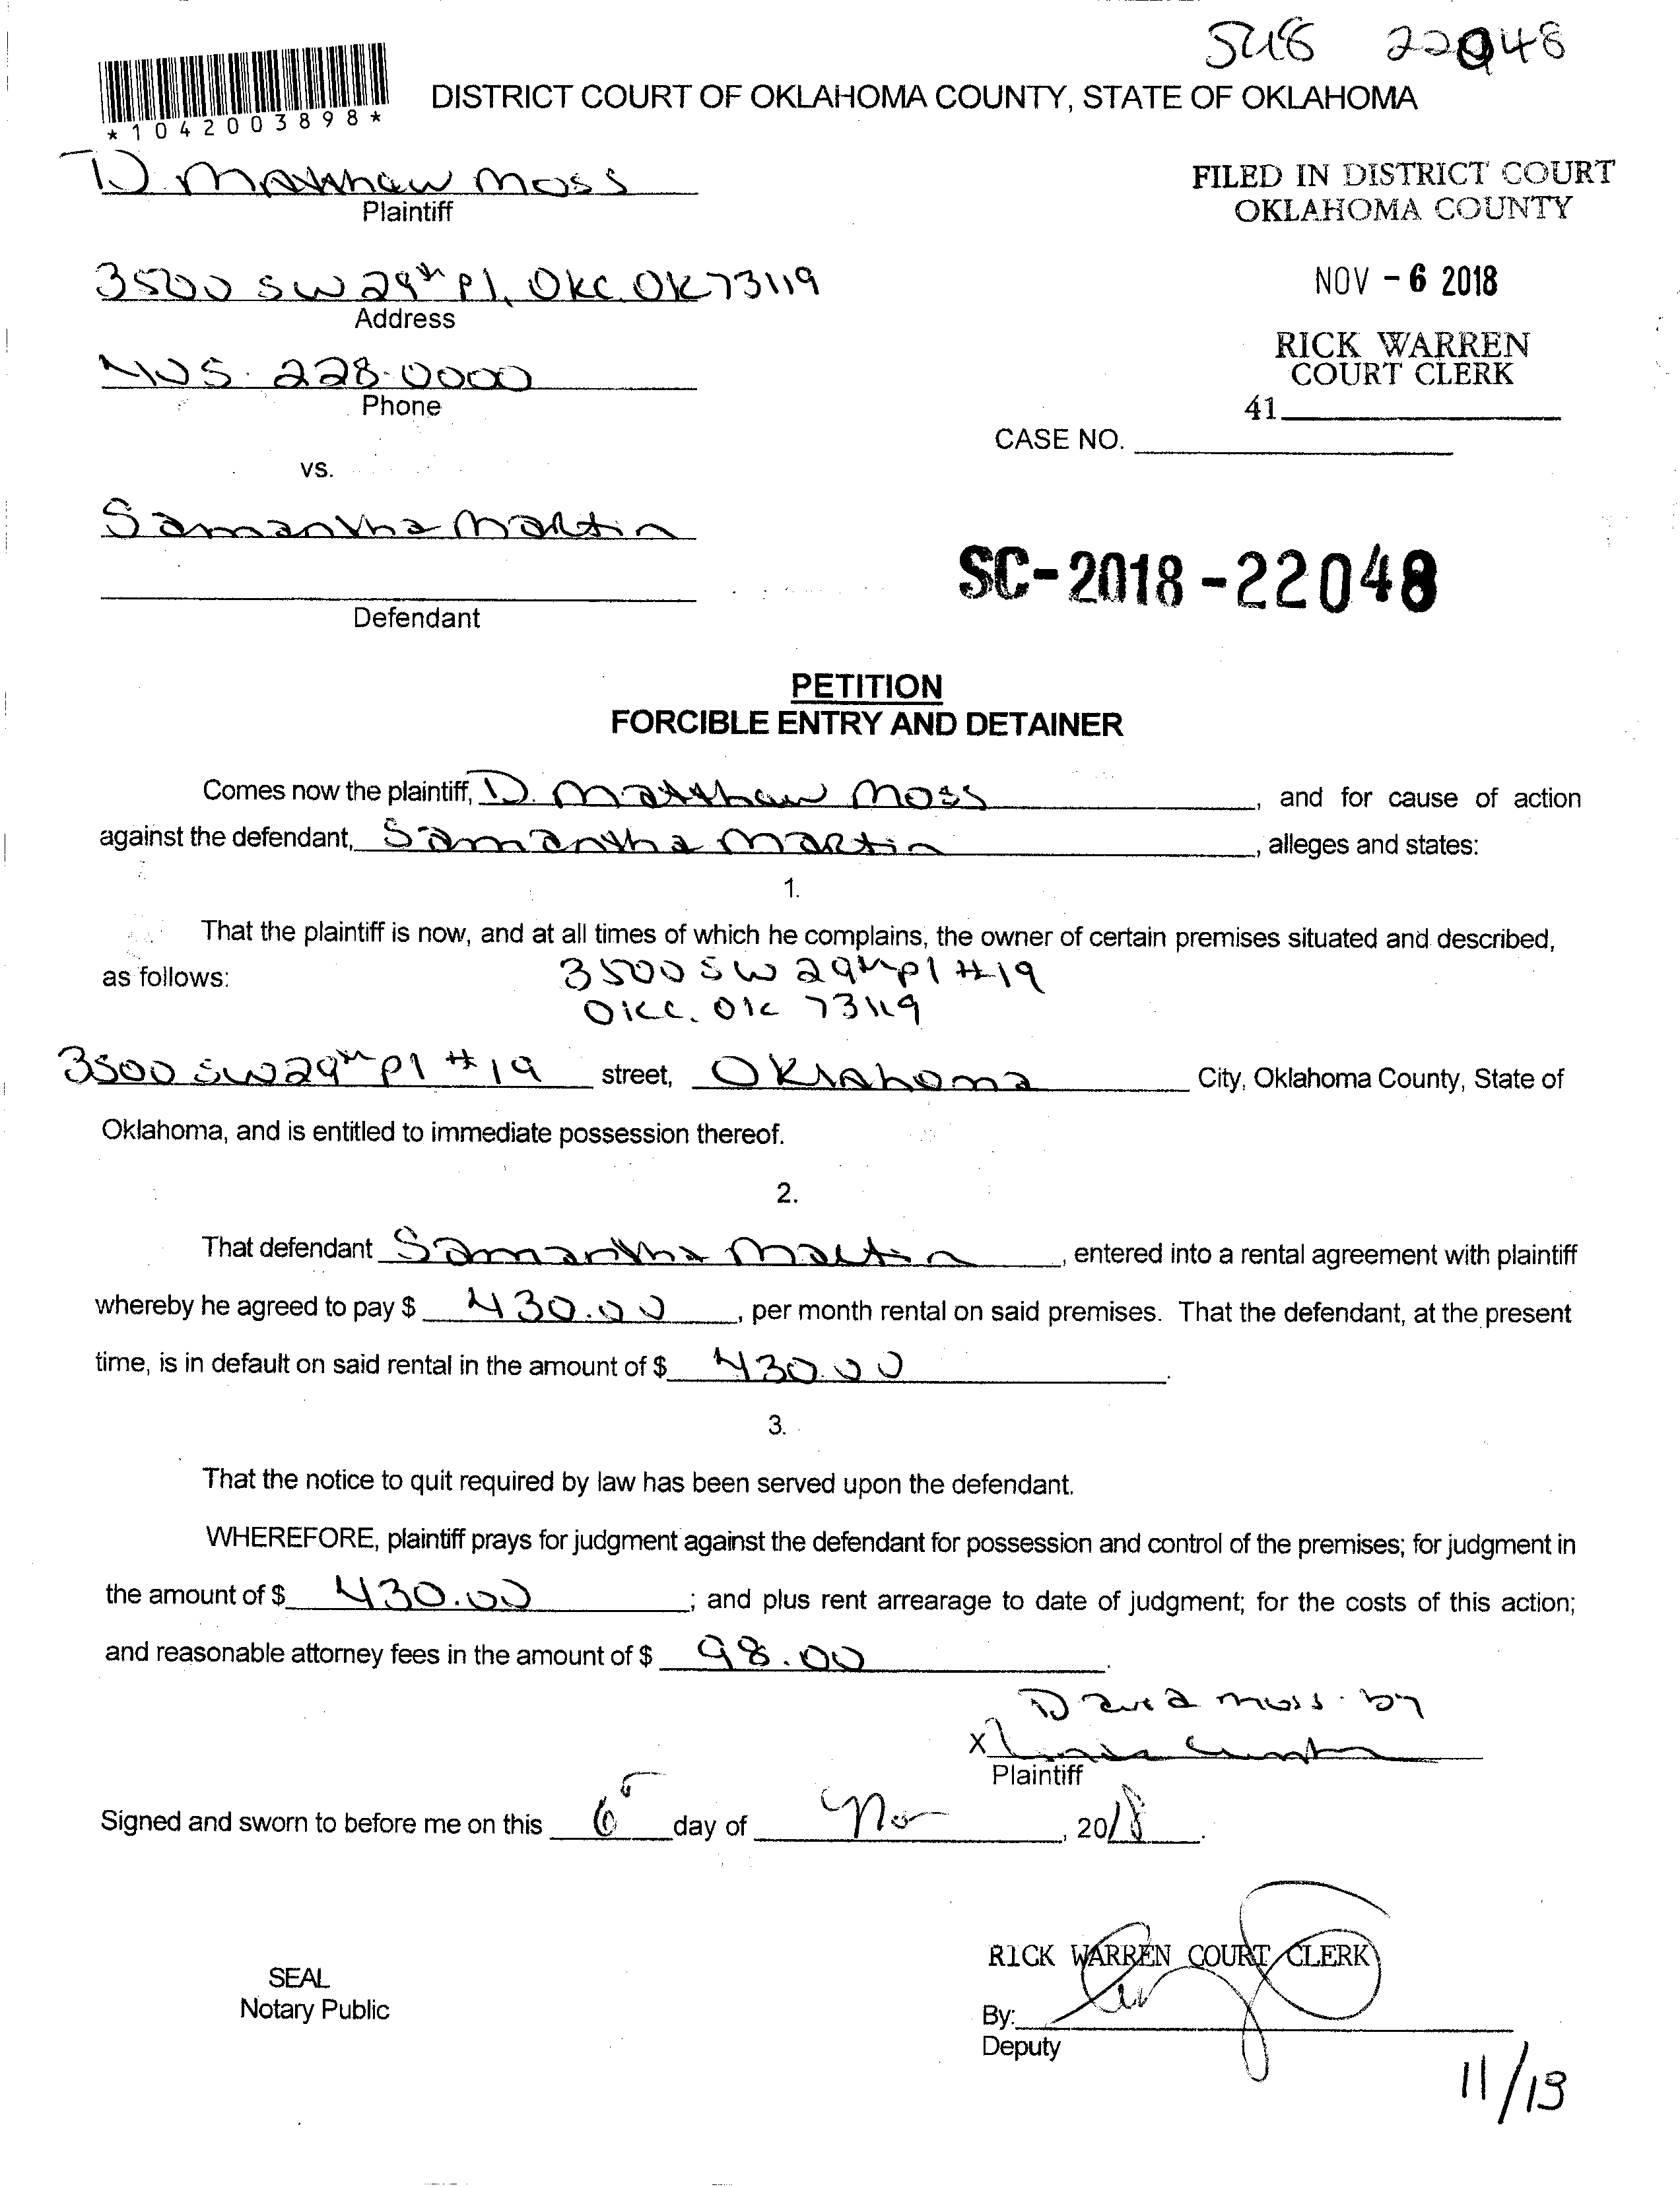 22048
DISTRICT COURT OF OKLAHOMA COUNTY, STATE OF OKLAHOMA
*1042003898*
D. Matthew Moss
Plaintiff
FILED IN DISTRICT COURT
OKLAHOMA COUNTY
3500 SW 29th Pl, OKC OK 73119
Address
NOV - 6 2018
RICK WARREN
COURT CLERK
405-228-0000
Phone
41
CASE NO.
vs.
Samantha Martin
SC-2018-22048
Defendant
PETITION
FORCIBLE ENTRY AND DETAINER
Comes now the plaintiff, D. Matthew Moss, and for cause of action
against the defendant, Samantha Martin, alleges and states:
1.
That the plaintiff is now, and at all times of which he complains, the owner of certain premises situated and described,
as follows: 3500 SW 29th Pl #19
OKC. OK 73119
3500 SW 29th Pl #19 street, Oklahoma City, Oklahoma County, State of
Oklahoma, and is entitled to immediate possession thereof.
2.
That defendant Samantha Martin, entered into a rental agreement with plaintiff
whereby he agreed to pay $ 430.00, per month rental on said premises. That the defendant, at the present
time, is in default on said rental in the amount of $ 430.00.
3.
That the notice to quit required by law has been served upon the defendant.
WHEREFORE, plaintiff prays for judgment against the defendant for possession and control of the premises; for judgment in
the amount of $ 430.00; and plus rent arrearage to date of judgment; for the costs of this action;
and reasonable attorney fees in the amount of $ 98.00.
David Moss by
X
Plaintiff
Signed and sworn to before me on this 6 day of Nov, 2018.
RICK WARREN COURT CLERK
SEAL
Notary Public
By:
Deputy
11/13